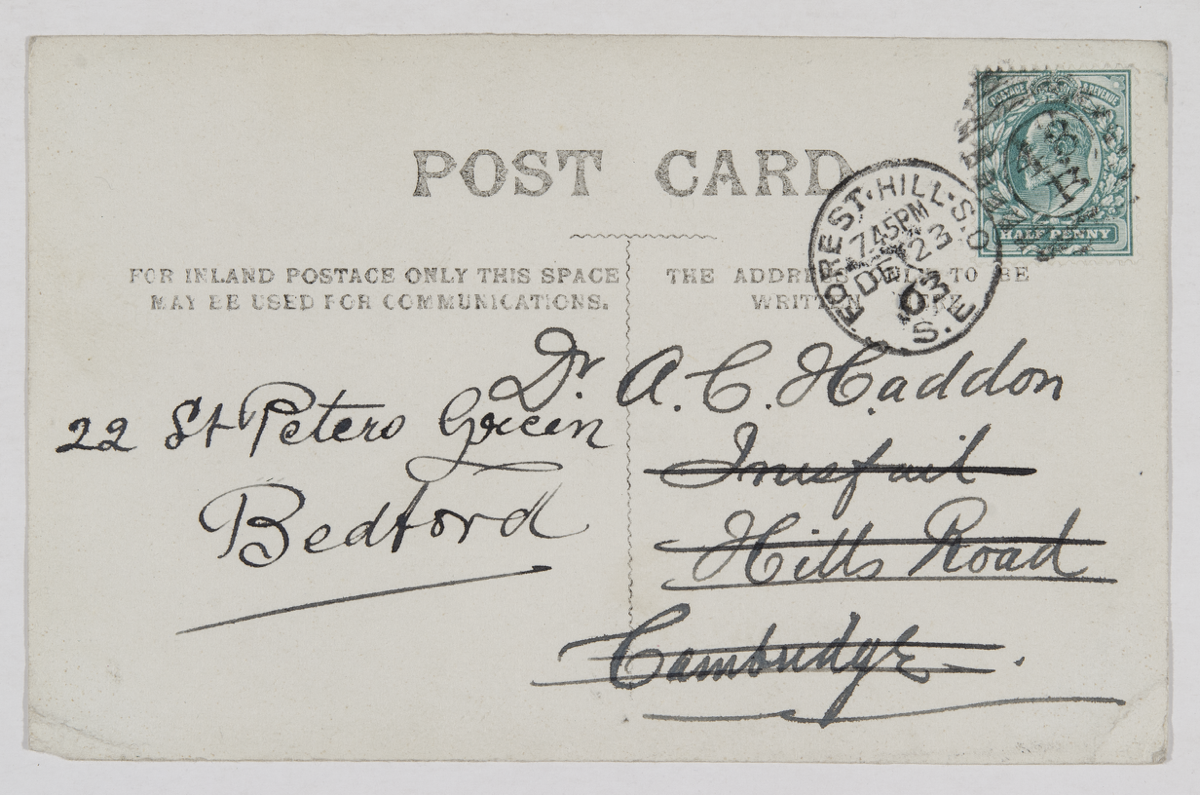 POST CARD
FOR INLAND POSTAGE ONLY THIS SPACE
MAY BE USED FOR COMMUNICATIONS.
THE ADDRESS ONLY TO BE
WRITTEN HERE.
POSTAGE & REVENUE
HALF PENNY
FOREST·HILL·S.O.
7.45PM
DE 23
03
S.E
Dr. A. C. Haddon
Inisfail
Hills Road
Cambridge.
22 St Peters Green
Bedford